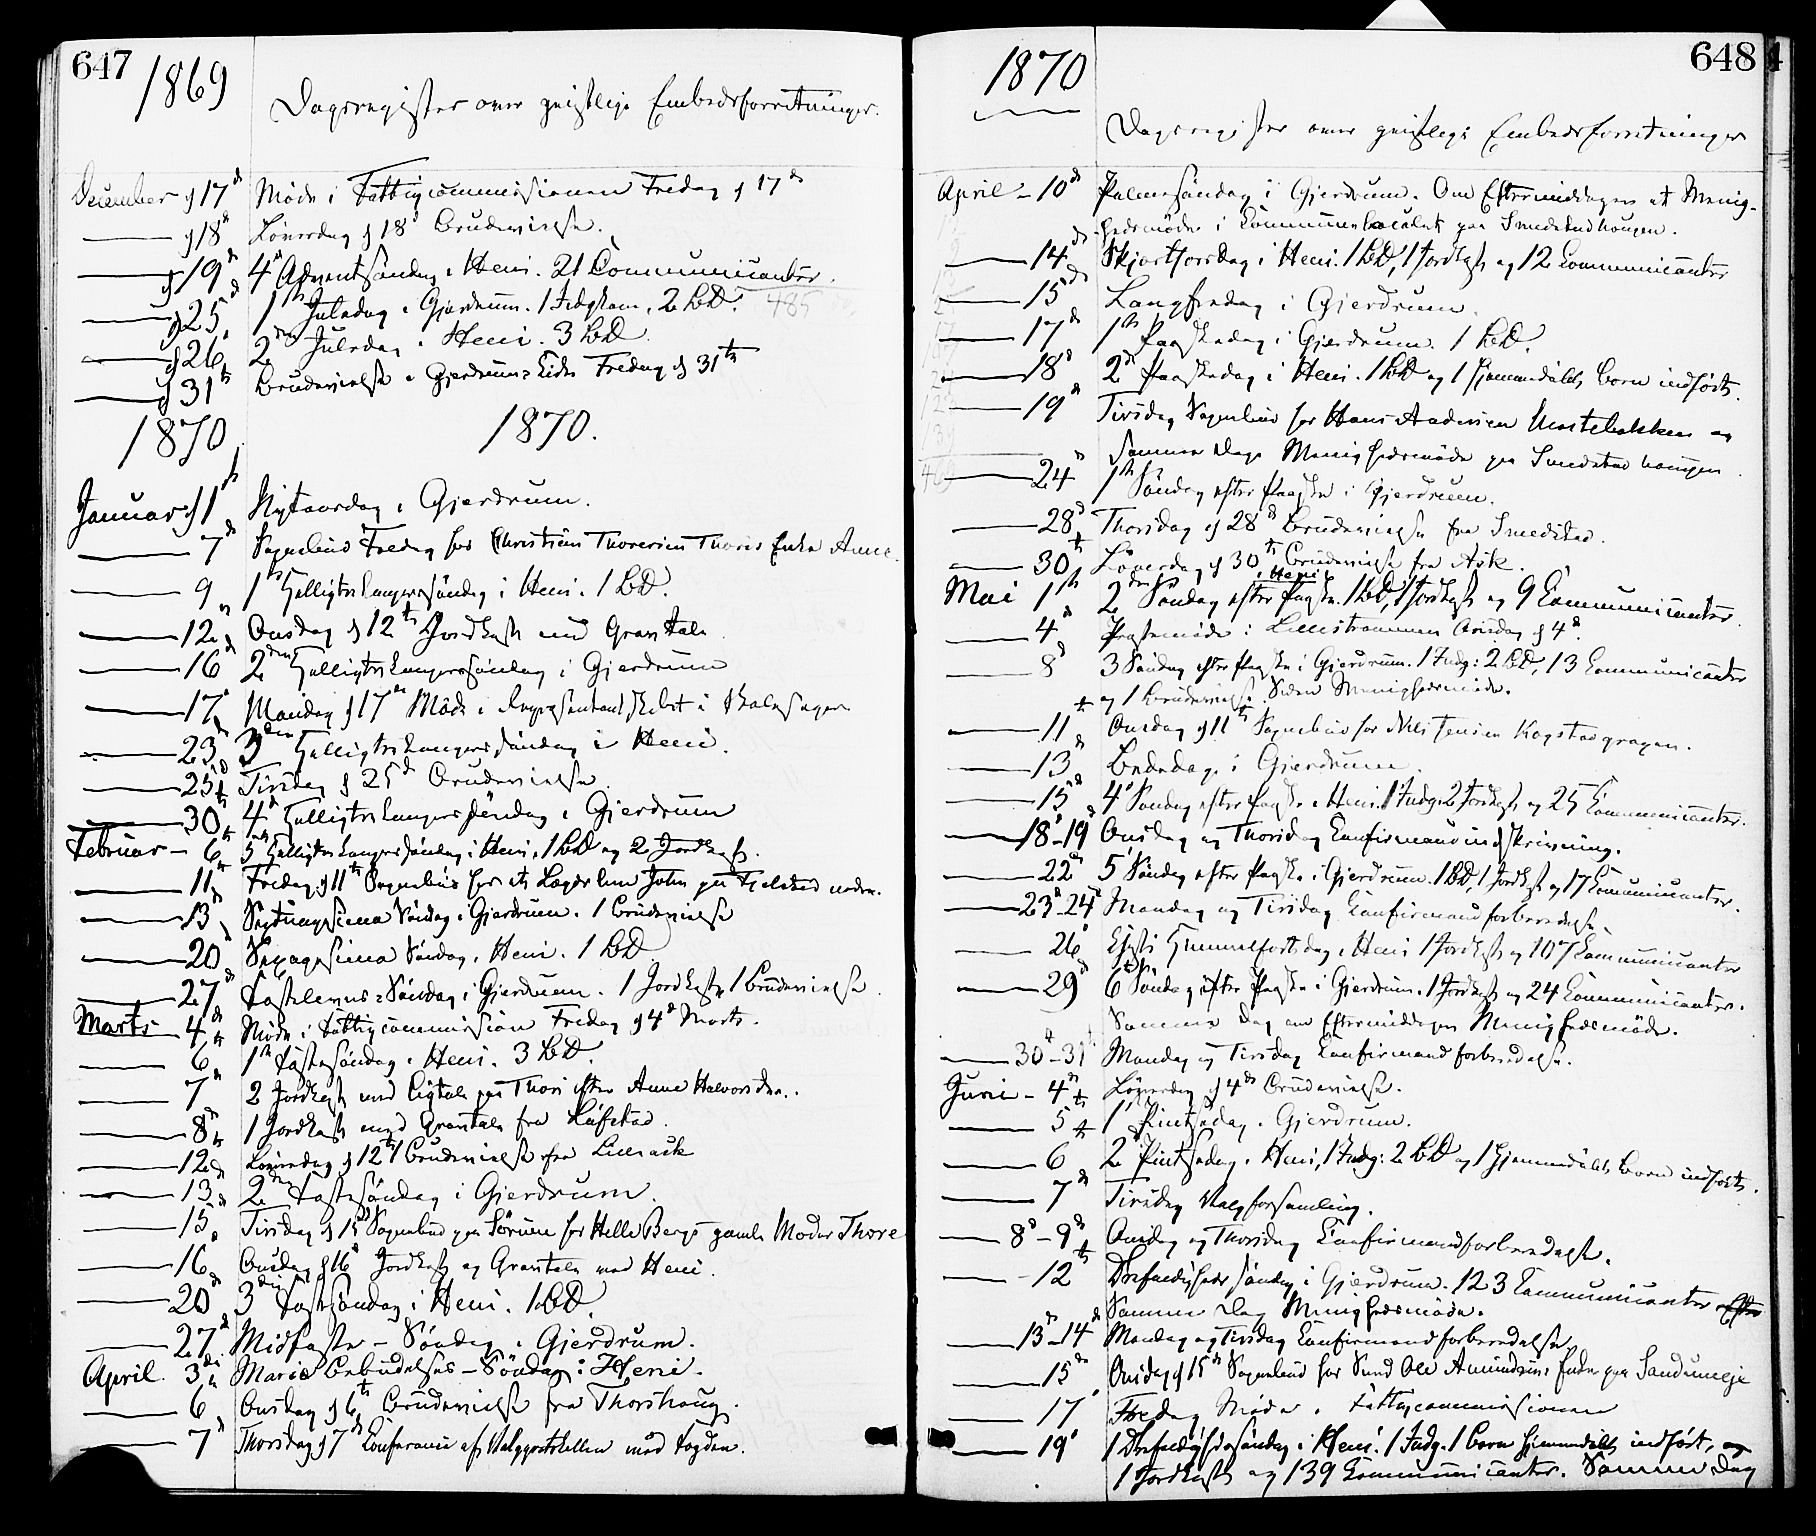 647
1869
Dagsregister over geistlige Embedsforretninger.
December d 17de Möde i Fattigcommissionen Fredag d 17de
d 18d Löverdag d 18d Brudevielse.
d 19de 4de Adventsöndag i Heni. 21 Communicanter.
d 25d 1ste Juledag i Gjerdrum. 1 Indgkone. 2 bD. 485
d 26 2den Juledag i Heni. 3 bD
d 31te Brudevielse i Gjerdrums Kirke Fredag d 31te
1870 1870.
Januar d 1ste Nytaarsdag i Gjerdrum.
7de Sognebud Fredag hos Christian Thoresen Thoris Enke Anne.
9 1ste Helligtrekongerssöndag i Heni. 1 bD.
12te Onsdag d 12te Jordkast med Gravtale.
16d 2den Helligtrekongerssöndag i Gjerdrum
17d Mandag d 17de Möde i Repræsentantskabet i Skalesagen
23d 3den Helligtrekongerssöndag i Heni.
25d Tirsdag d 25d Brudevielse.
30te 4d Helligtrekongerssöndag i Gjerdrum
Februar - 6te 5te Helligtrekongerssöndag i Heni, 1 bD og 2 Jordkast.
11te Fredag d 11te Sognebud hos John paa Fjelstad nedre.
13 Septuagesima Söndag i Gjerdrum. 1 Brudevielse
20 Sexagesima Söndag i Heni. 1 bD
27de Fastelavns=Söndag i Gjerdrum. 1 Jordkast, 1 Brudevielse
Marts 4de Möde i Fattigcommission Fredag d 4de Marts.
6te 1ste Fastesöndag i Heni. 3 bD.
7d 2 Jordkast med Ligtale paa Thori efter Anne Halvorsdtr.
8de 1 Jordkast med Gravtale fra Löfstad.
12te Löverdag d 12te 1 Brudevielse fra Lilleask
13d 2den Fastesöndag i Gjerdrum.
15d Tirsdag d 15d Sognebud paa Sörum hos Helle Bergs gamle Moder Thore
16 Onsdag d 16d Jordkast og Gravtale ved Heni.
20de 3die Fastesöndag i Heni. 1 bD.
27d Midfaste - Söndag i Gjerdrum.
April. 3die Mariæ Bebudelses - Söndag i Heni.
6te Onsdag d 6te Brudevielse fra Thorshaug.
7d Thorsdag d 7de Conference af Valgpostskellen med Fogden.
648
1870
Dagsregister over geistlige Embedsforretninger
April - 10de Palmesöndag i Gjerdrum. Om Eftermiddagen et Menig-
hedsmöde i Communelocalet paa Smedstadhougen.
14de Skjertorsdag i Heni. 1 bD, 1 Jordkast og 12 Communicanter
15de Langfredag i Gjerdrum.
17d 1ste Paaskedag i Gjerdrum. 1 bD.
18d 2den Paaskedag i Heni. 1 bD og 1 hjemmedöbt Barn indfört.
19d Tirsdag Sognebud hos Hans Andersen Mostebakken og
Samme Dag Menighedsmöde paa Smedstadhougen.
24 1ste Söndag efter Paaske i Gjerdrum.
28d Thorsdag d 28d Brudevielse fra Smedstad.
30te Löverdag d 30te Brudevielse fra Ask.
i Heni
Mai 1ste 2den Söndag efter Paaske. 1 bD, 1 Jordkast og 9 Communicanter.
4d Præstemöde i Lillestrømmen Onsdag d 4d.
8d 3 Söndag efter Paaske i Gjerdrum. 1 Indg: 2 bD, 13 Communicanter
og 1 Brudevielse. Siden Menighedsmöde.
11te Onsdag d 11te Sognebud hos Nils Jensen Kogstadgragen.
13d Bededag i Gjerdrum.
15d 4d Söndag efter Paaske i Heni. 1 Indg: 2 Jordkast og 25 Communicanter.
18d-19d Onsdag og Thorsdag Confirmandindskrivning.
22de 5 Söndag efter Paaske i Gjerdrum. 1 bD, 1 Jordkast og 17 Communicanter.
23d-24d Mandag og Tirsdag Confirmandforberedelse.
26d Christi Himmelfartsdag i Heni 1 Jordkast og 107 Communicanter
29d 6te Söndag efter Paaske i Gjerdrum. 1 Jordkast og 24 Communicanter.
Samme Dag om Eftermiddagen Menighedsmöde.
30te-31te Mandag og Tirsdag Confirmandforberedelse.
Juni - 4de Löverdag d 4de Brudevielse.
5te 1 Pintsedag i Gjerdrum.
6te 2d Pintsedag i Heni, 1 Indg: 2 bD og 1 hjemmedöbt Barn indfört.
7de Tirsdag Valgforsamling.
8d-9d Onsdag og Thorsdag Confirmandforberedelse.
12te Trefoldigheds söndag i Gjerdrum. 123 Communicanter
Samme Dag Menighedsmöde.
13de-14de Mandag og Tirsdag Confirmandforberedelse.
15de Onsdag d 15de Sognebud hos Ole Amundsens Enke paa Sandumeje
17d Fredag Möde i Fattigcommissionen
19d 1 Trefoldighedssöndag i Heni. 1 Indg. 1 Barn hjemmedöbt indfört, og
1 Jordkast og 139 Communicanter. Samme Dag